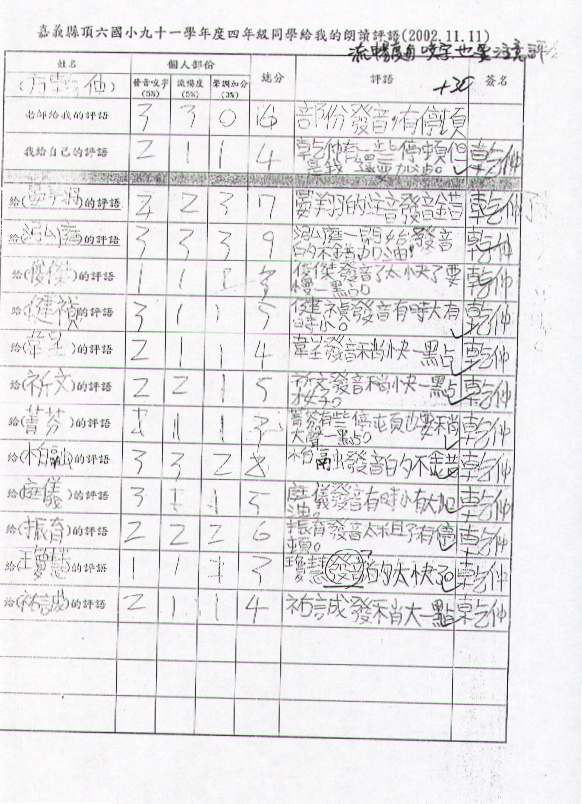 嘉義縣頂六國小九十一學年度四年級同學給我的朗讀評語(2002.11.11)
流暢度自咬字也要注意評
姓名 個人部份 總分 評語 +30 簽名
發音咬字(5%) 流暢度(5%) 聲調加分(3%)
老師給我的評語 3 3 0 6 部份發音,有停頓
我給自己的評語 2 1 1 4 乾仲有一些停頓但 乾仲
是我還要加油。
給( )的評語 2 2 3 7 晏翔的注音發音錯 乾仲
給( )的評語 3 3 3 9 泓庭一開始發音 乾仲
的不錯加油!
給(俊傑)的評語 1 1 1 3 俊傑發音了太快了要 乾仲
慢一點。
給(健禎)的評語 3 1 1 5 健禎發音有時大有 乾仲
時小。
給( )的評語 2 1 1 4 發音稍快一點 乾仲
給(祈文)的評語 2 2 1 5 祈文發音稍小快一點 乾仲
才好。
給(菁芬)的評語 1 1 1 3 菁芬有些停頓也要稍 乾仲
大聲一點。
給(柏融)的評語 3 3 2 8 柏融發音的不錯 乾仲
給(庭儀)的評語 3 1 1 5 庭儀發音有時小有大加 乾仲
油。
給(振育)的評語 2 2 2 6 振育發音太粗了有停 乾仲
頓。
給(瓊慧)的評語 1 1 1 3 瓊慧發音的太快了。 乾仲
給(祐誠)的評語 2 1 1 4 祐誠發稍大一點 乾仲